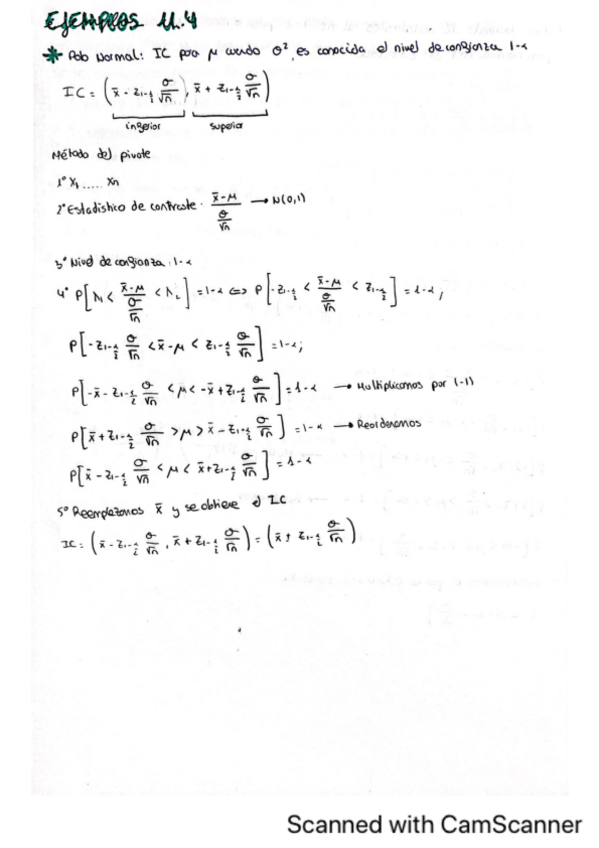 EJEMPLOS U.4
* Pob Normal: IC para μ cuando σ², es conocida al nivel de confianza 1-α
IC = (x̄ - z₁₋α/₂ σ/√n, x̄ + z₁₋α/₂ σ/√n)
inferior superior
Método del pivote
1º X₁ ..... Xn
2º Estadístico de contraste. (x̄-μ)/(σ/√n) → N(0,1)
3º Nivel de confianza: 1-α
4º P[λ₁ < (x̄-μ)/(σ/√n) < λ₂] = 1-α ⇔ P[-z₁₋α/₂ < (x̄-μ)/(σ/√n) < z₁₋α/₂] = 1-α;
P[-z₁₋α/₂ σ/√n < x̄-μ < z₁₋α/₂ σ/√n] = 1-α;
P[-x̄ - z₁₋α/₂ σ/√n < μ < -x̄ + z₁₋α/₂ σ/√n] = 1-α → Multiplicamos por (-1)
P[x̄ + z₁₋α/₂ σ/√n > μ > x̄ - z₁₋α/₂ σ/√n] = 1-α → Reordenamos
P[x̄ - z₁₋α/₂ σ/√n < μ < x̄ + z₁₋α/₂ σ/√n] = 1-α
5º Reemplazamos x̄ y se obtiene el IC
IC = (x̄ - z₁₋α/₂ σ/√n, x̄ + z₁₋α/₂ σ/√n) = (x̄ ± z₁₋α/₂ σ/√n)
Scanned with CamScanner